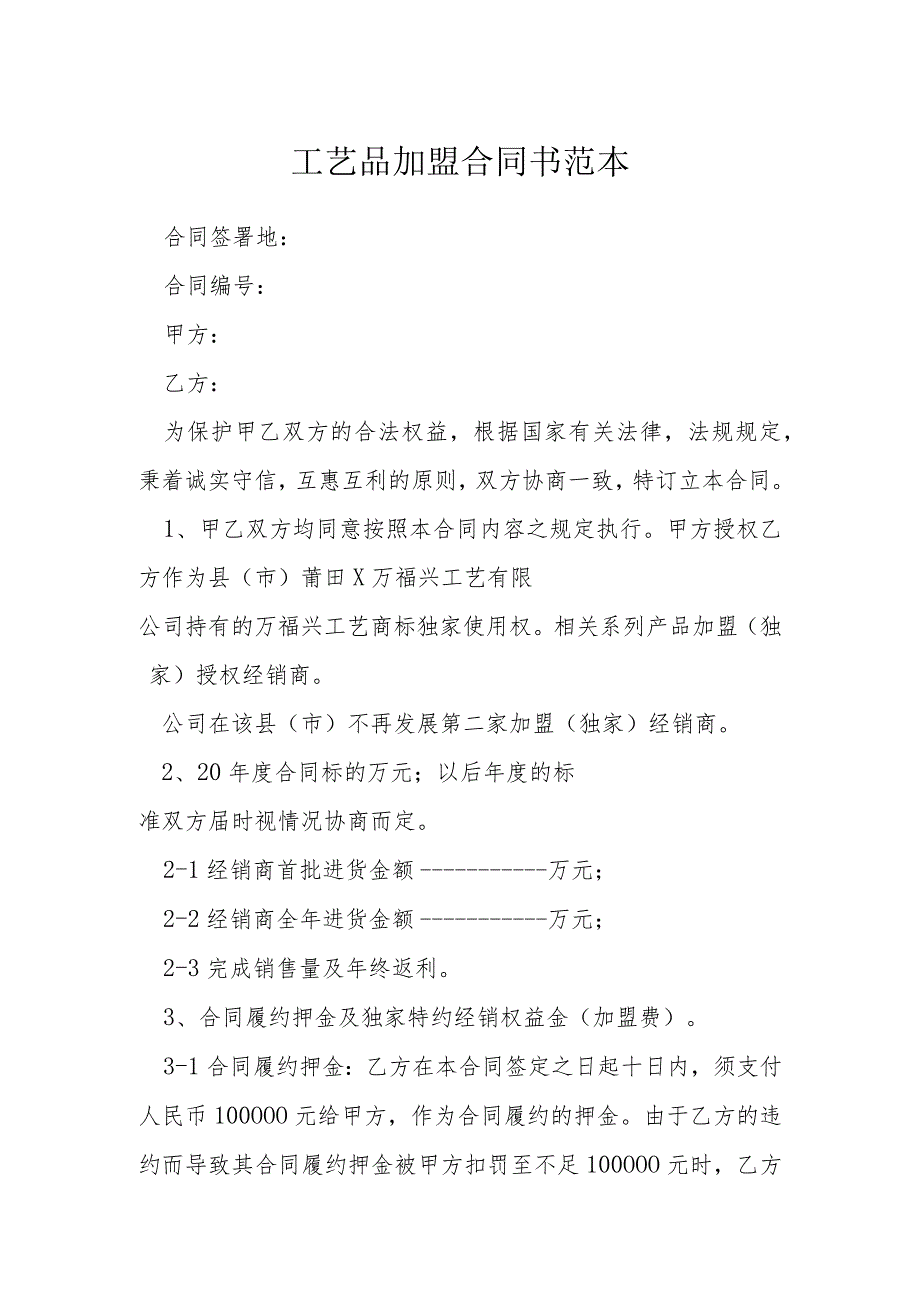 工艺品加盟合同书范本
合同签署地：
合同编号：
甲方：
乙方：
为保护甲乙双方的合法权益，根据国家有关法律，法规规定，
秉着诚实守信，互惠互利的原则，双方协商一致，特订立本合同。
1、甲乙双方均同意按照本合同内容之规定执行。甲方授权乙
方作为县（市）莆田X万福兴工艺有限
公司持有的万福兴工艺商标独家使用权。相关系列产品加盟（独
家）授权经销商。
公司在该县（市）不再发展第二家加盟（独家）经销商。
2、20年度合同标的万元；以后年度的标
准双方届时视情况协商而定。
2-1经销商首批进货金额-----------万元；
2-2经销商全年进货金额-----------万元；
2-3完成销售量及年终返利。
3、合同履约押金及独家特约经销权益金（加盟费）。
3-1合同履约押金：乙方在本合同签定之日起十日内，须支付
人民币100000元给甲方，作为合同履约的押金。由于乙方的违
约而导致其合同履约押金被甲方扣罚至不足100000元时，乙方